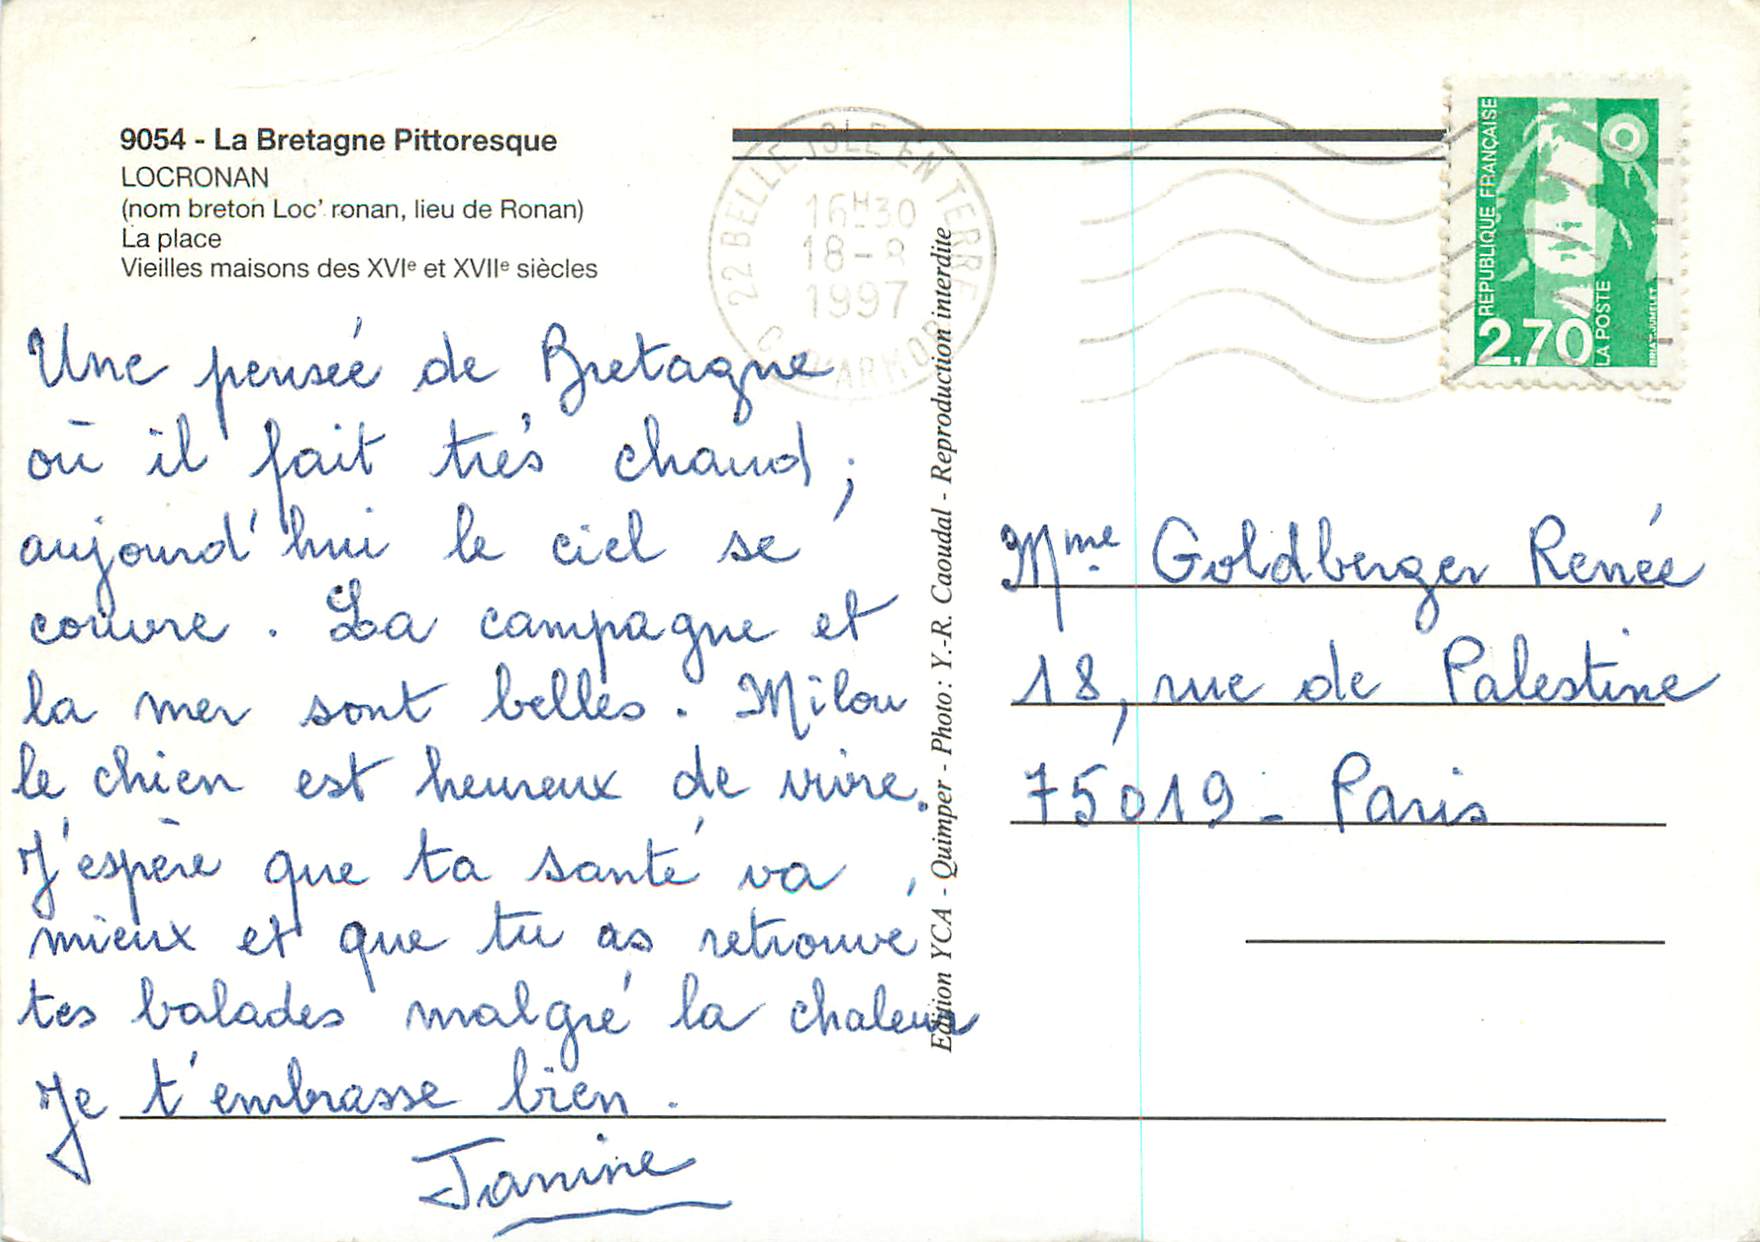 9054 - La Bretagne Pittoresque
LOCRONAN
(nom breton Loc' ronan, lieu de Ronan)
La place
Vieilles maisons des XVIe et XVIIe siècles
22 BELLE ISLE EN TERRE
16H30
18-8
1997
D'ARMOR
RÉPUBLIQUE FRANÇAISE
2,70
LA POSTE
BRIAT-JUMELET
Une pensée de Bretagne
où il fait très chaud ;
aujourd'hui le ciel se
couvre . La campagne et
la mer sont belles . Milou
le chien est heureux de vivre.
J'espère que ta santé va
mieux et que tu as retrouvé
tes balades malgré la chaleur
Je t'embrasse bien .
Janine
Edition YCA - Quimper - Photo : Y.-R. Caoudal - Reproduction interdite
Mme Goldberger Renée
18, rue de Palestine
75019 - Paris